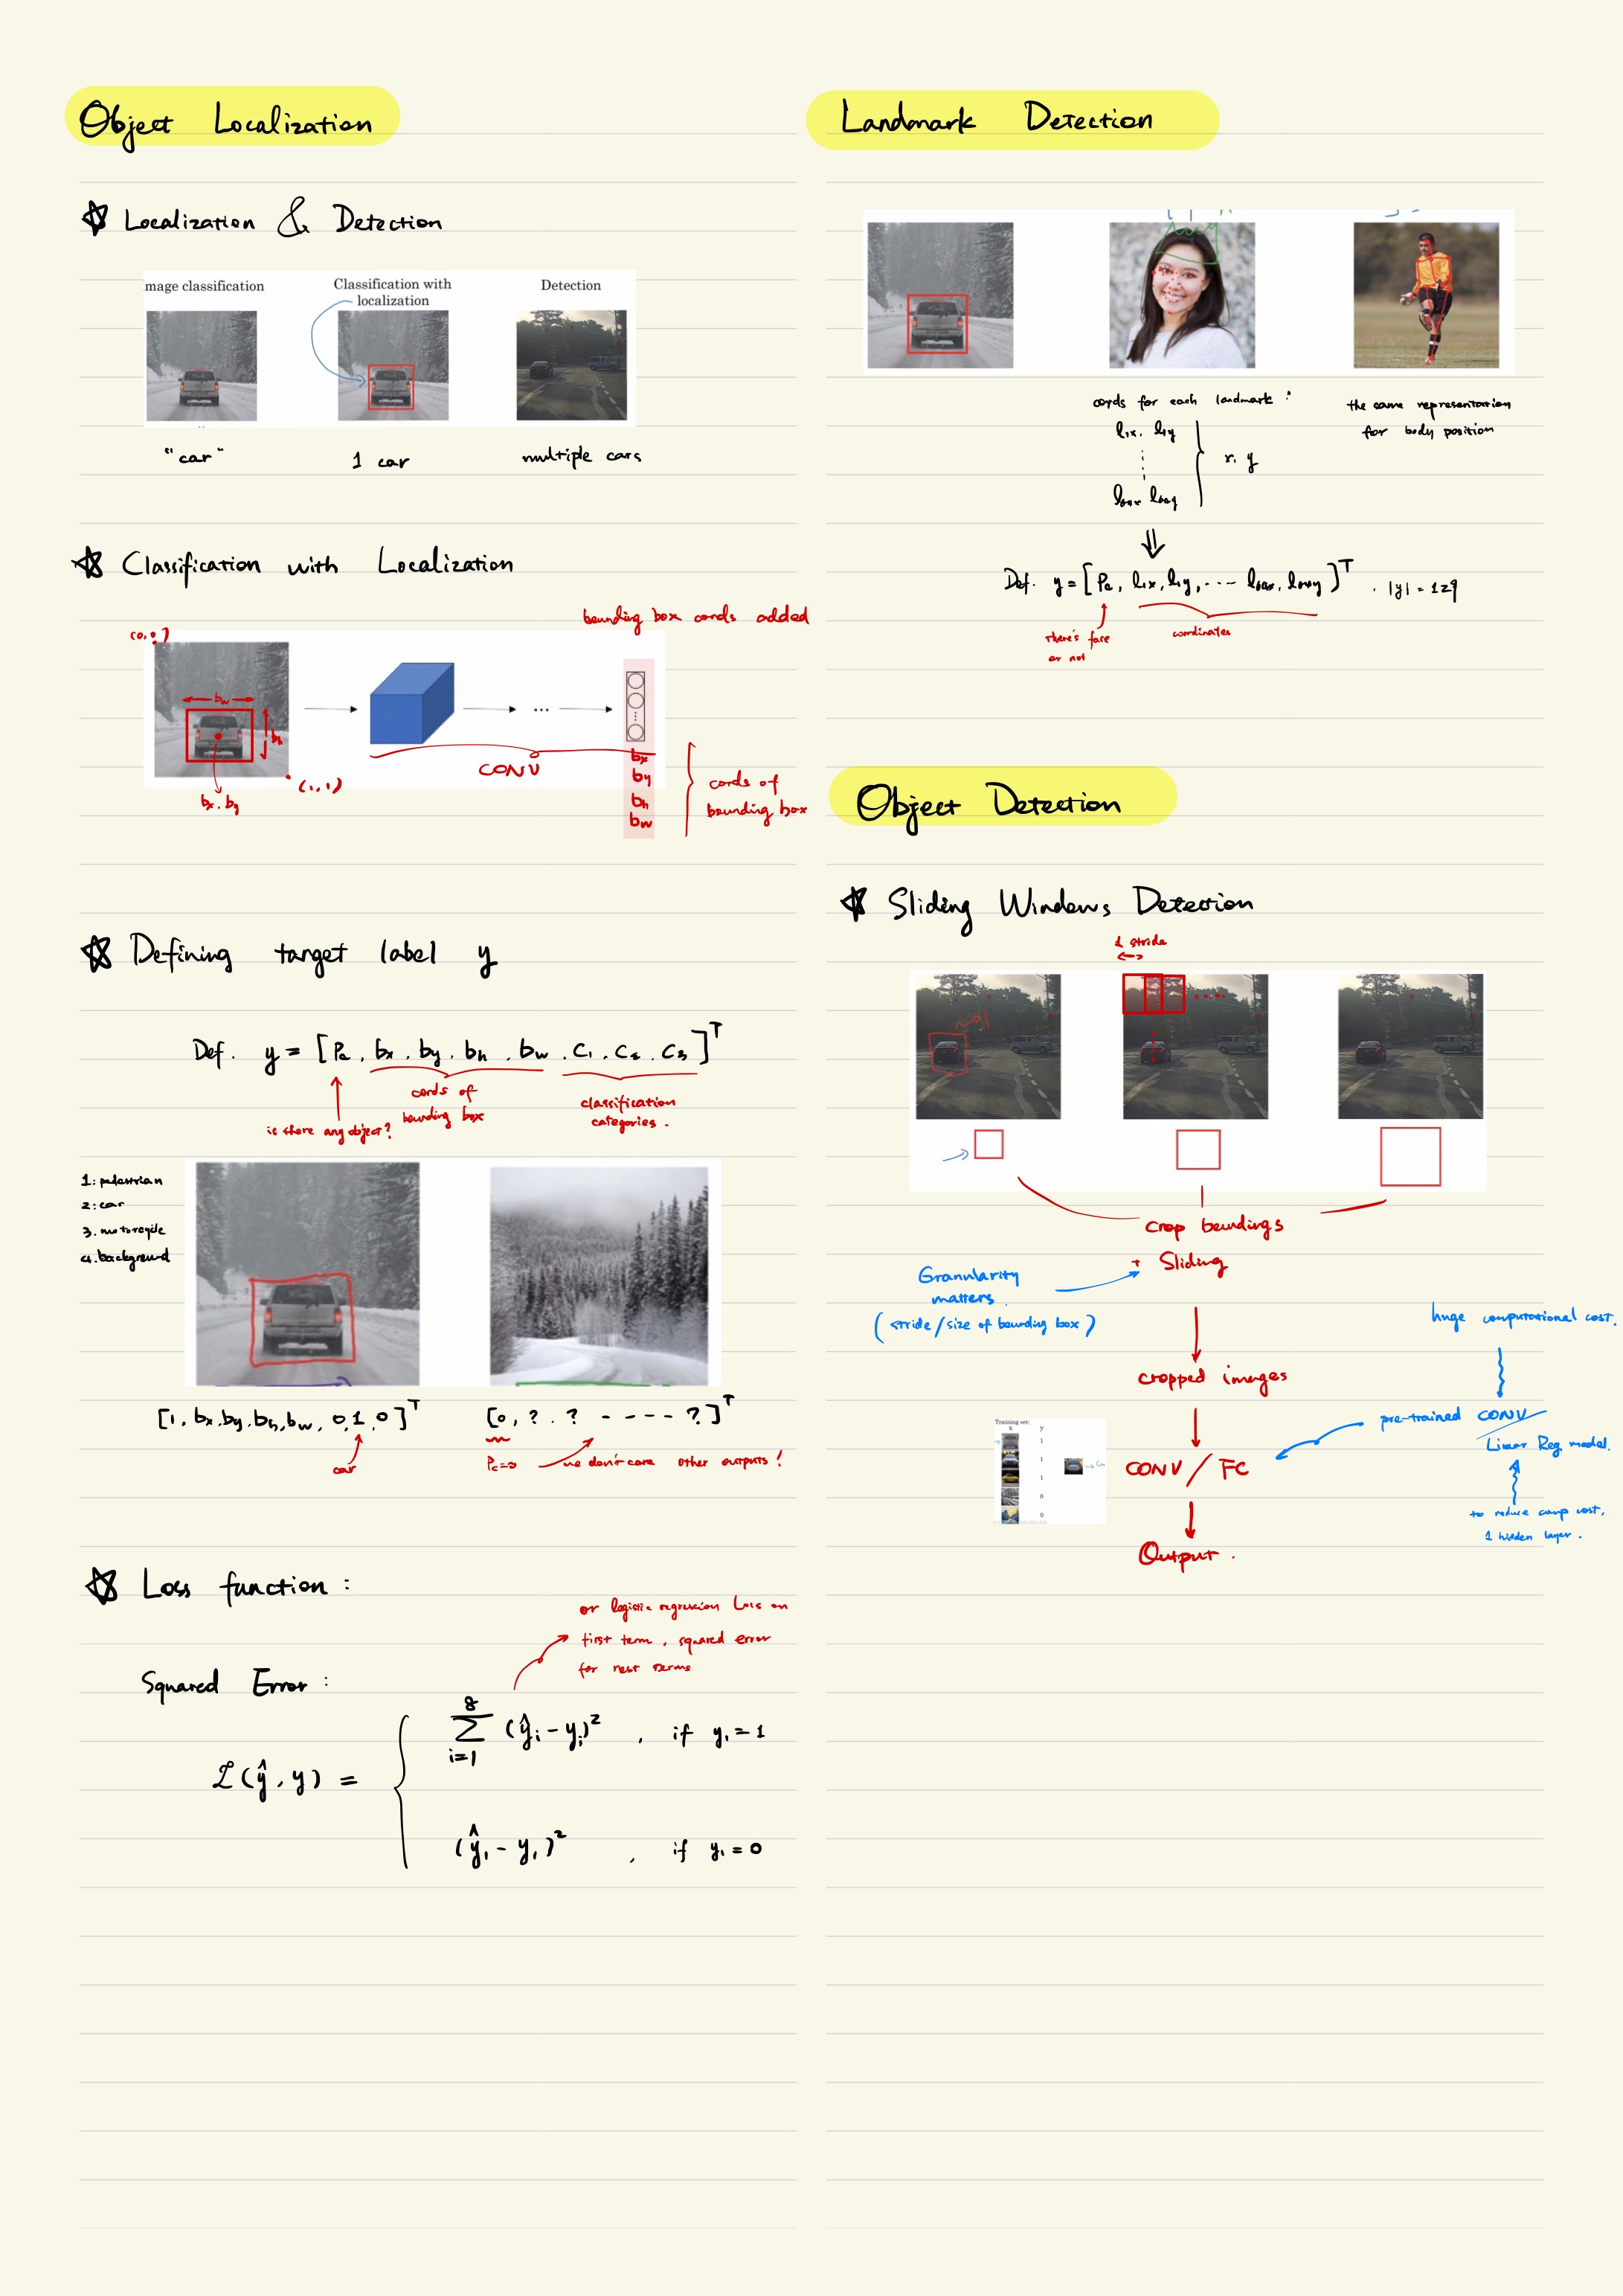 Object Localization
☆ Localization & Detection
mage classification
Classification with
localization
Detection
"car"
1 car
multiple cars
☆ Classification with Localization
bounding box cords added
(0,0)
bw
bh
bx, by
(1,1)
CONV
bx
by
bh
bw
cords of
bounding box
☆ Defining target label y
Def. y = [Pc, bx, by, bh, bw, C1, C2, C3]ᵀ
is there any object?
cords of
bounding box
classification
categories.
1: pedestrian
2: car
3. motorcycle
4. background
[1, bx, by, bh, bw, 0, 1, 0]ᵀ
car
[0, ? . ? - - - - ?]ᵀ
Pc=0
we don't care other outputs!
☆ Loss function:
or logistic regression Loss on
first term, squared error
for rest terms
Squared Error:
L(ŷ, y) =
8
Σ (ŷi - yi)² , if y1 = 1
i=1
(ŷ1 - y1)² , if y1 = 0
Landmark Detection
cords for each landmark:
l1x, l1y
x, y
the same representation
for body position
⇓
Def. y = [Pc, l1x, l1y, ... l64x, l64y]ᵀ . |y| = 129
there's face
or not
coordinates
Object Detection
☆ Sliding Windows Detection
1 stride
crop boundings
+ Sliding
Granularity
matters.
(stride/size of bounding box)
cropped images
huge computational cost.
pre-trained CONV
Linear Reg model.
to reduce comp cost.
1 hidden layer.
Training set:
x y
1
1
1
0
0
CONV / FC
Output.